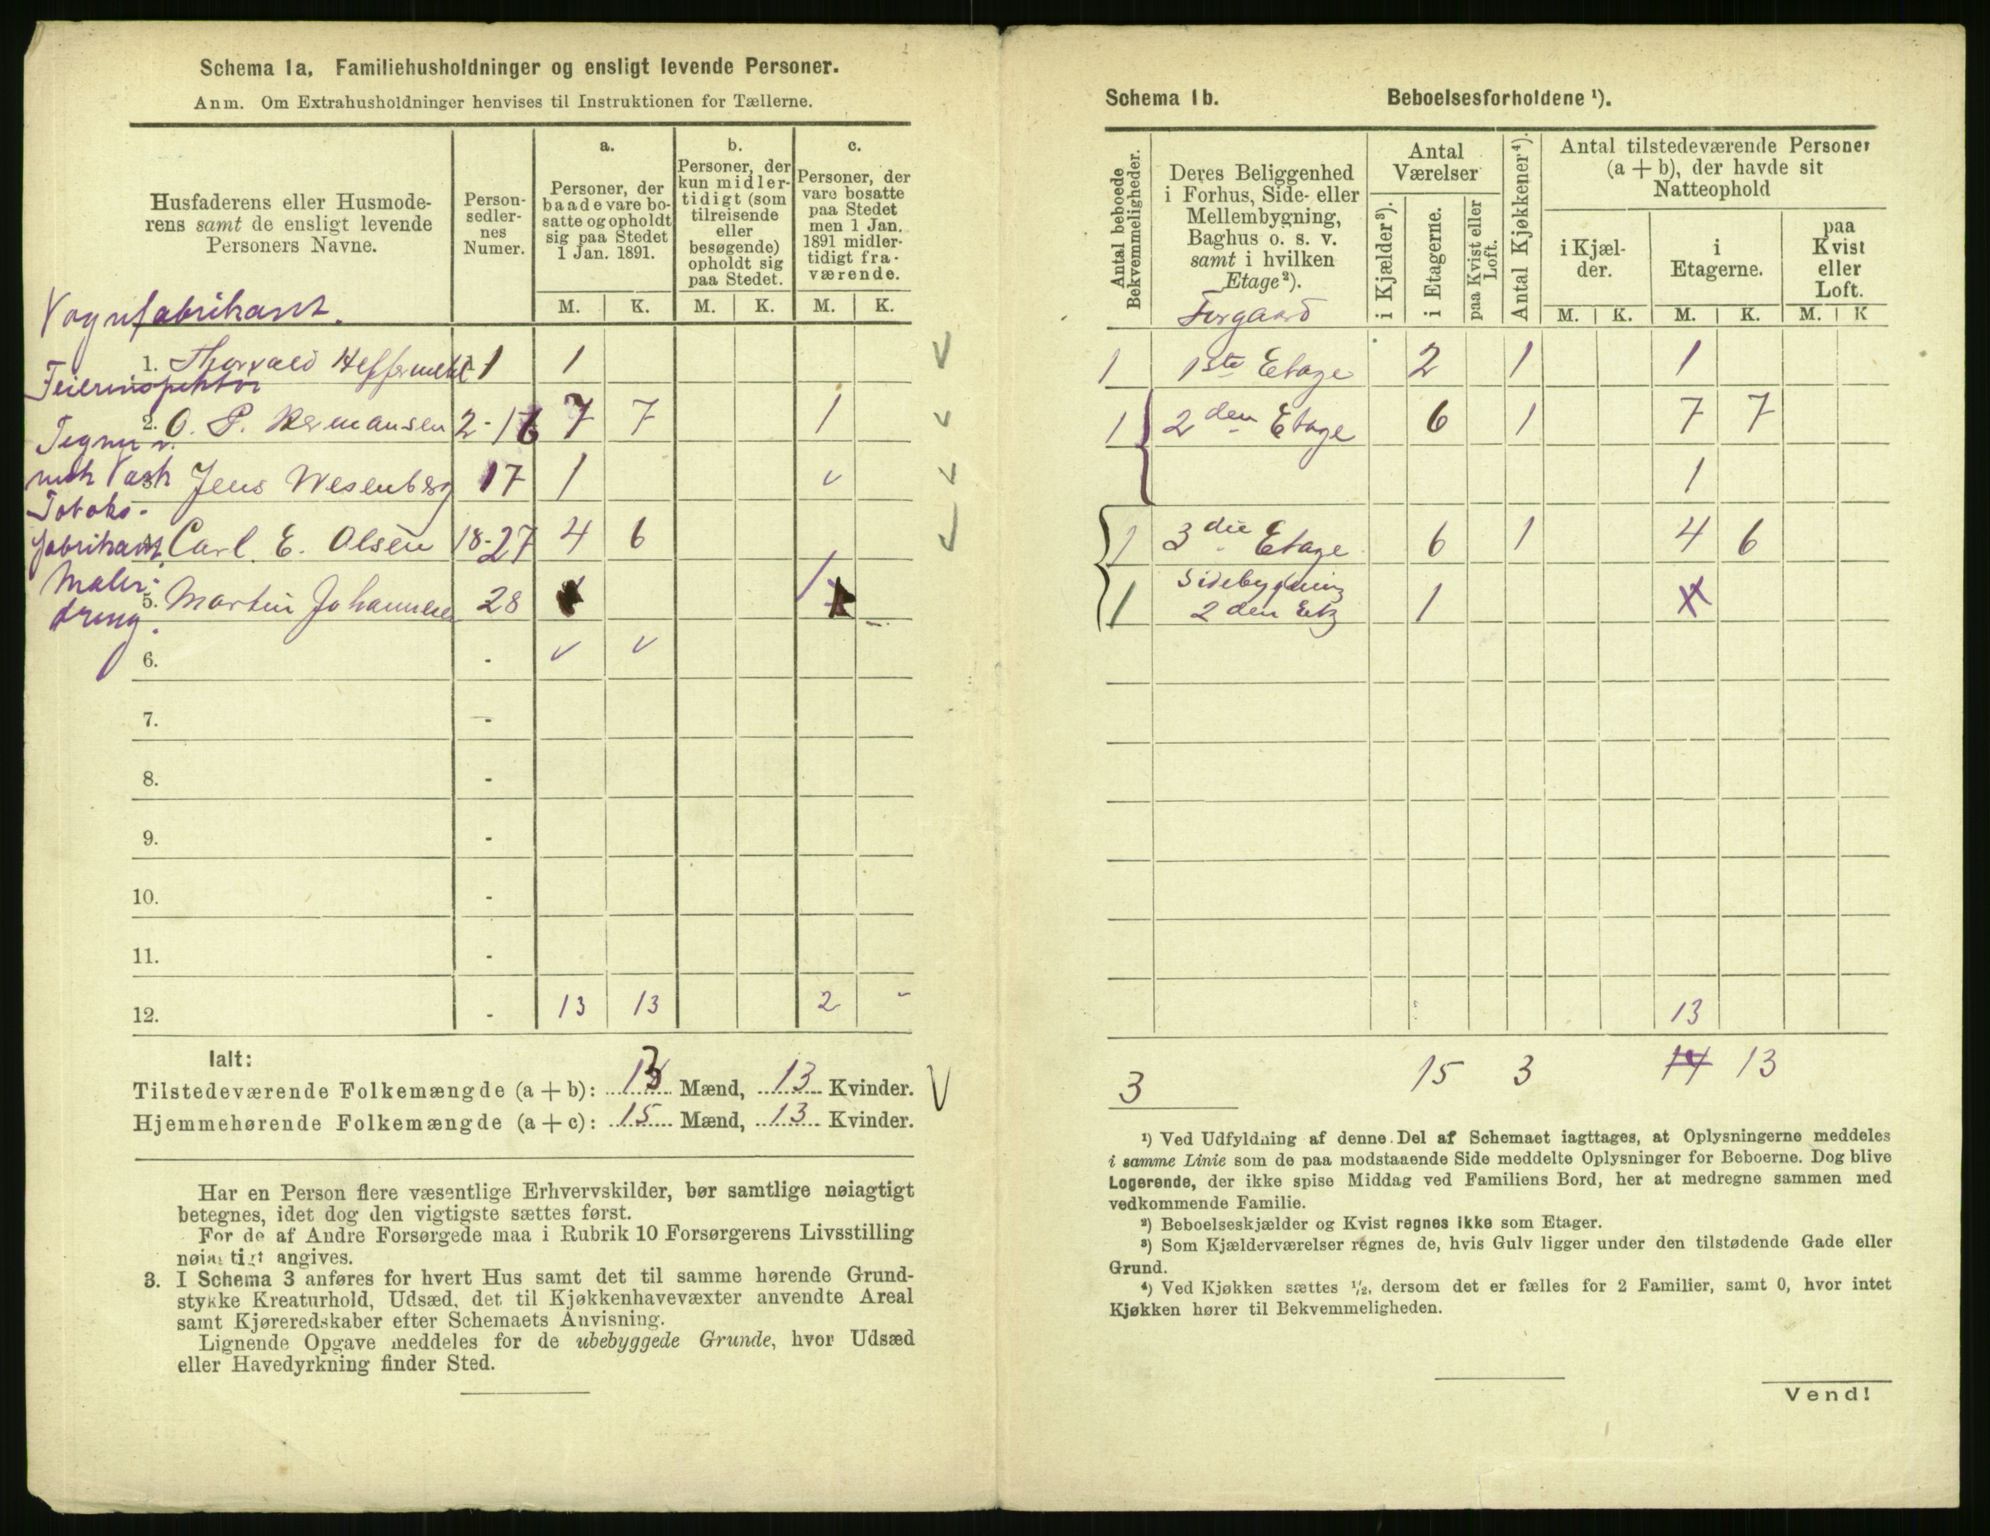 Schema 1a, Familiehusholdninger og ensligt levende Personer.
Anm. Om Extrahusholdninger henvises til Instruktionen for Tællerne.
Husfaderens eller Husmoderens samt de ensligt levende Personers Navne.
Personsedlernes Numer.
a. Personer, der baade vare bosatte og opholdt sig paa Stedet 1 Jan. 1891.
b. Personer, der kun midlertidigt (som tilreisende eller besøgende) opholdt sig paa Stedet.
c. Personer, der vare bosatte paa Stedet men 1 Jan. 1891 midlertidigt fraværende.
M. K. M. K. M. K.
Vognfabrikant.
1. Thorvald Heffermehl 1 1
Feierinspektør
2. O. P. Hermansen 2-16 7 7 1
3. Jens Wesenberg 17 1
Tobaks-
fabrikant. Carl. E. Olsen 18-27 4 6
Maler-
dreng.
5. Martin Johannesen 28 1
6. -
7. -
8. -
9. -
10. -
11. -
12. - 13 13 2 -
Ialt:
Tilstedeværende Folkemængde (a + b): 13 Mænd, 13 Kvinder.
Hjemmehørende Folkemængde (a + c): 15 Mænd, 13 Kvinder.
Har en Person flere væsentlige Erhvervskilder, bør samtlige nøiagtigt
betegnes, idet dog den vigtigste sættes først.
For de af Andre Forsørgede maa i Rubrik 10 Forsørgerens Livsstilling
nøiagtigt angives.
3. I Schema 3 anføres for hvert Hus samt det til samme hørende Grund-
stykke Kreaturhold, Udsæd, det til Kjøkkenhavevæxter anvendte Areal
samt Kjøreredskaber efter Schemaets Anvisning.
Lignende Opgave meddeles for de ubebyggede Grunde, hvor Udsæd
eller Havedyrkning finder Sted.
Schema 1b. Beboelsesforholdene ¹).
Antal beboede Bekvemmeligheder.
Deres Beliggenhed i Forhus, Side- eller Mellembygning, Baghus o. s. v. samt i hvilken Etage²).
Antal Værelser
i Kjælder³).
i Etagerne.
paa Kvist eller Loft.
Antal Kjøkkener⁴).
Antal tilstedeværende Personer (a + b), der havde sit Natteophold
i Kjælder.
i Etagerne.
paa Kvist eller Loft.
M. K. M. K. M. K
Forgaard
1 1ste Etage 2 1 1
1 2den Etage 6 1 7 7
1
1 3die Etage 6 1 4 6
Sidebygning
1 2den Etg 1
13
3 15 3 14 13
¹) Ved Udfyldning af denne Del af Schemaet iagttages, at Oplysningerne meddeles
i samme Linie som de paa modstaaende Side meddelte Oplysninger for Beboerne. Dog blive
Logerende, der ikke spise Middag ved Familiens Bord, her at medregne sammen med
vedkommende Familie.
²) Beboelseskjælder og Kvist regnes ikke som Etager.
³) Som Kjælderværelser regnes de, hvis Gulv ligger under den tilstødende Gade eller
Grund.
⁴) Ved Kjøkken sættes ¹/₂, dersom det er fælles for 2 Familier, samt 0, hvor intet
Kjøkken hører til Bekvemmeligheden.
Vend!